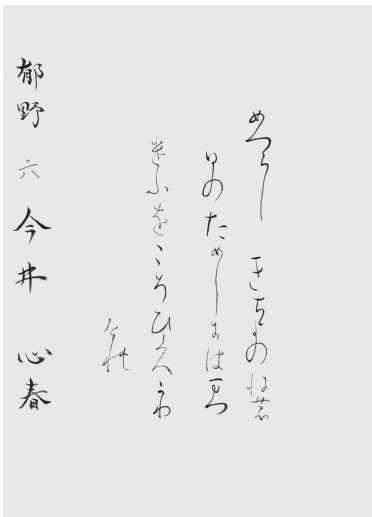 めつらし きちよのねの
日のためしにはまつ
けふをこそひくへかり
けれ
郁野 六 今井 心春